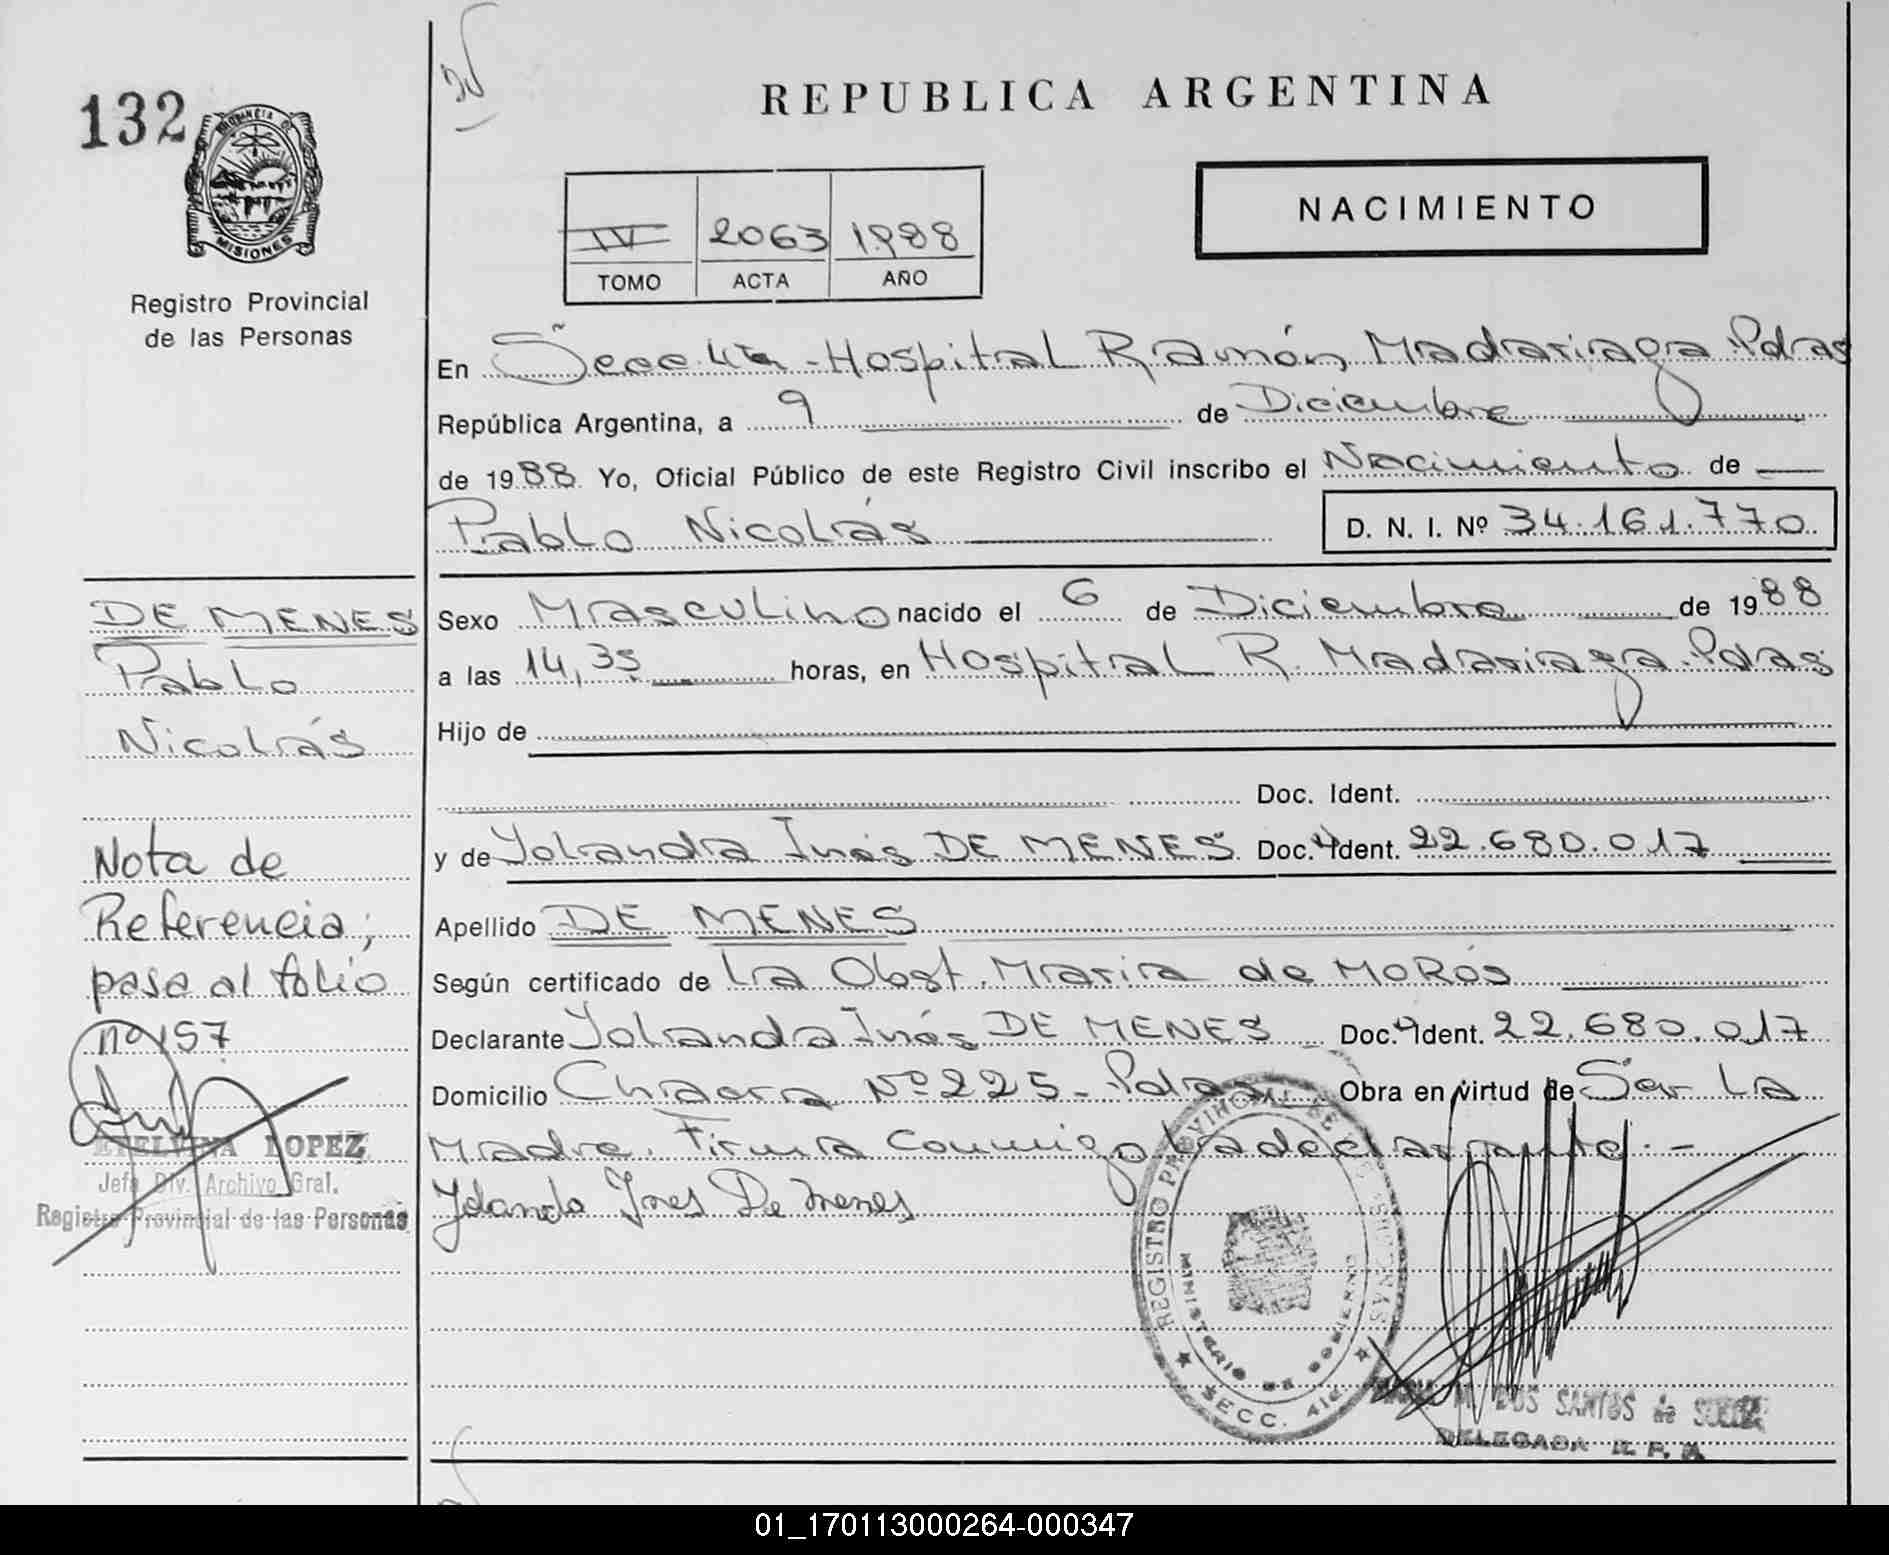 132
PROVINCIA DE
MISIONES
Registro Provincial
de las Personas
REPUBLICA ARGENTINA
IV 2063 1988
TOMO ACTA AÑO
NACIMIENTO
En Secc. 4ta - Hospital Ramón Madariaga. Pdas
República Argentina, a 9 de Diciembre
de 1988 Yo, Oficial Público de este Registro Civil inscribo el Nacimiento de
Pablo Nicolás
D. N. I. Nº 34.161.770
DE MENES
Pablo
Nicolás
Sexo Masculino nacido el 6 de Diciembre de 1988
a las 14,35 horas, en Hospital R. Madariaga. Pdas
Hijo de
Doc. Ident.
y de Yolanda Inés DE MENES Doc. Ident. 22.680.017
Apellido DE MENES
Según certificado de La Obst. Maria de MoRós
Declarante Yolanda Inés DE MENES Doc. Ident. 22.680.017
Domicilio Chacra Nº 225 - Pdas Obra en virtud de Ser La
Madre. Firma conmigo La declarante. -
Yolanda Ines De Menes
Nota de
Referencia;
pasa al folio
nº 157
ETELVINA LOPEZ
Jefa Div. Archivo Gral.
Registro Provincial de las Personas
REGISTRO PROVINCIAL DE LAS PERSONAS
MINISTERIO DE GOBIERNO
SECC. 4ta
M. DOS SANTOS de
DELEGADA R. P.
01_170113000264-000347